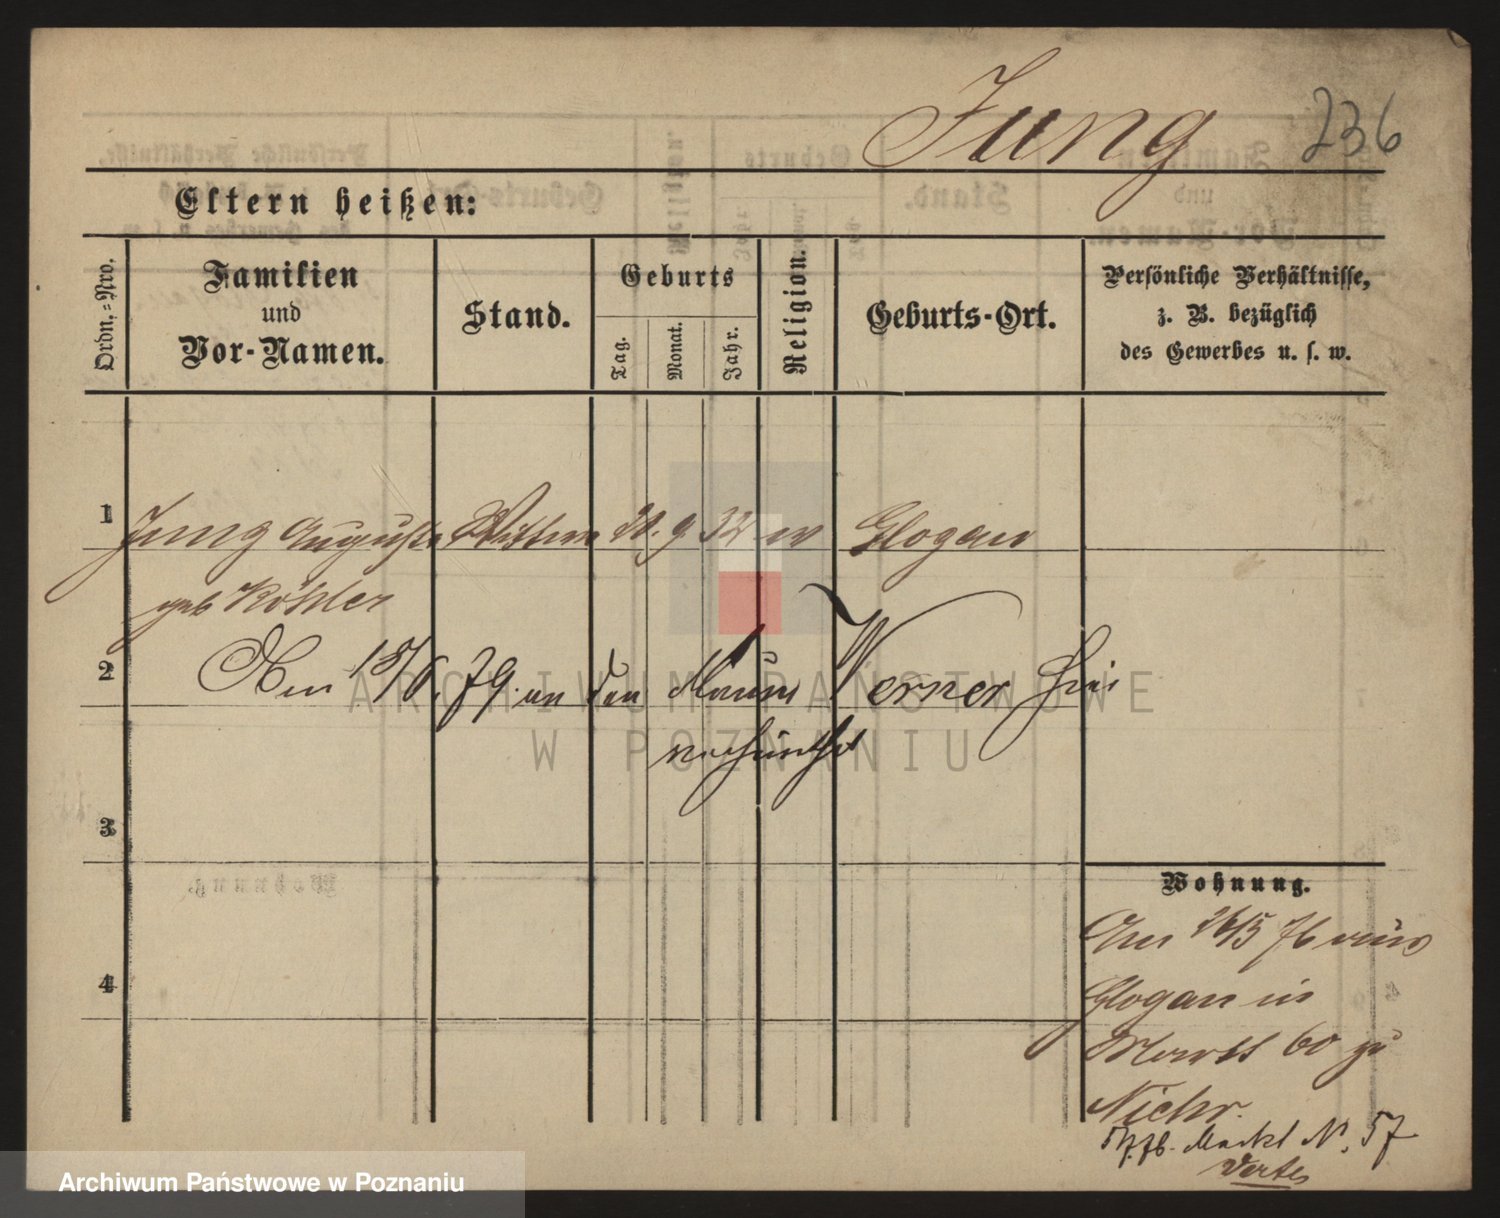 Jung 236
Eltern heißen:
Ordn.-Nro.
Familien
und
Vor-Namen.
Stand.
Geburts
Tag.
Monat.
Jahr.
Religion.
Geburts-Ort.
Persönliche Verhältnisse,
z. B. bezüglich
des Gewerbes u. s. w.
1 Jung Auguste Wittwe 21. 9 32 ev Glogau
geb Köhler
2 Am 15/6. 79. an den Maurer Werner hier
verheirathet
3
Wohnung.
Am 26/5 76 aus
4
Glogau in
Markt 60 zu
Markt N. 57
ARCHIWUM PAŃSTWOWE
W POZNANIU
Archiwum Państwowe w Poznaniu